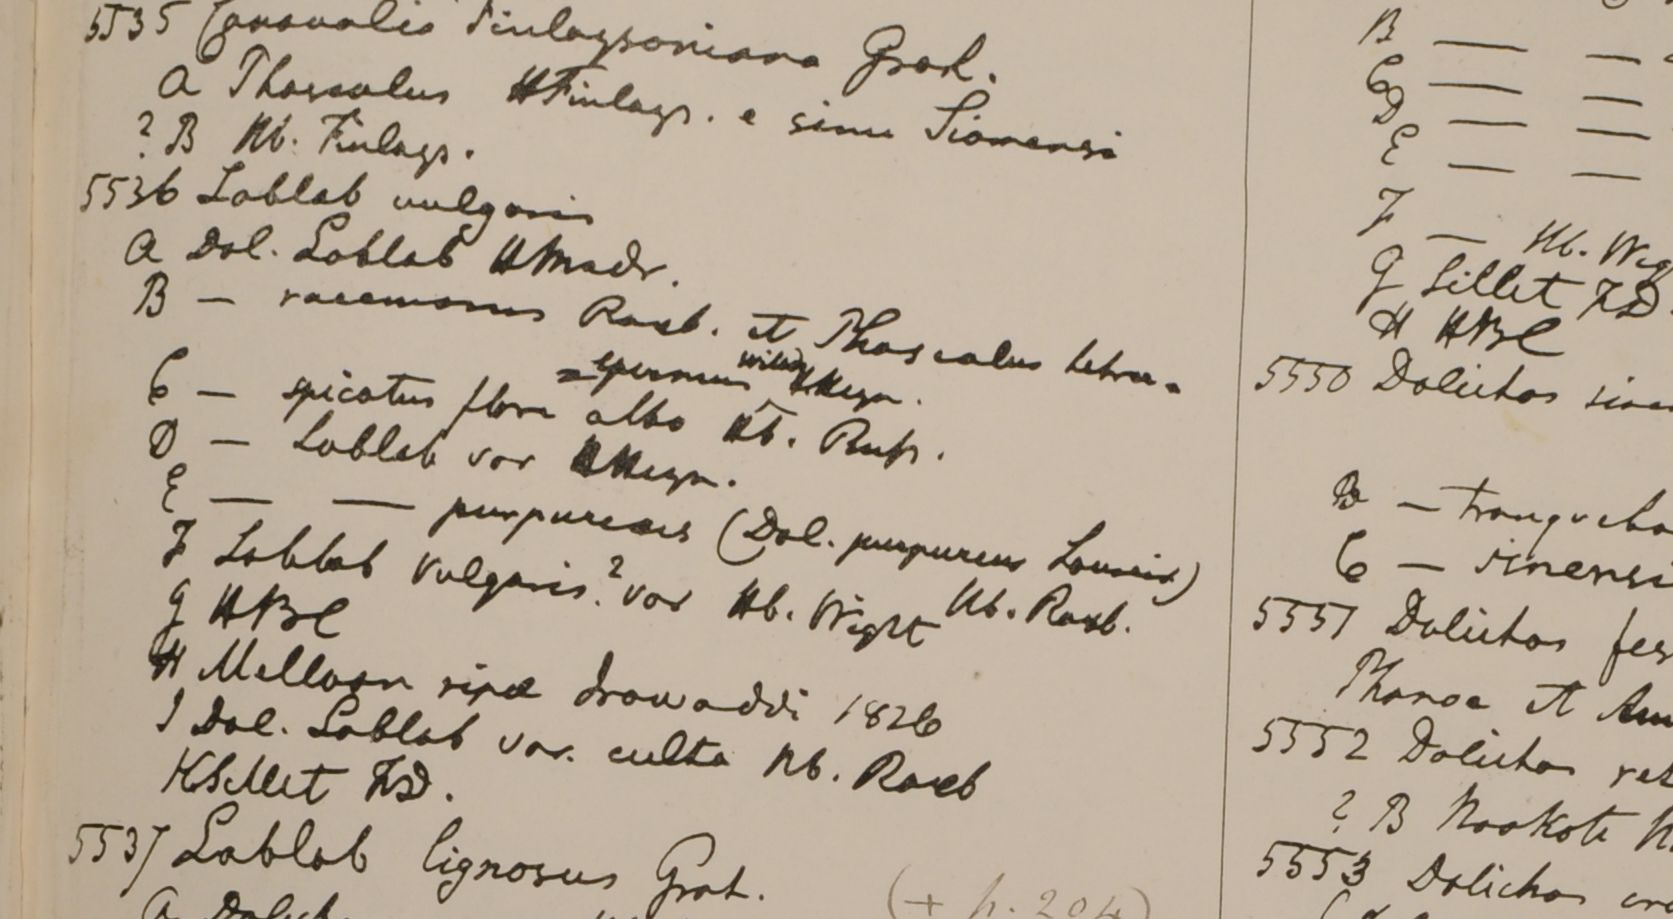 5535 Canavalia Finlaysoniana Grah.
A Phaseolus HFinlays. e sinu Siamensi
? B Hb. Finlays.
5536 Lablab vulgaris
A Dol. Lablab HMadr.
B — racemosus Roxb. et Phaseolus tetra-
=spermus Willd HHeyn.
C — spicatus flore albo Hb. Russ.
D — Lablab var HHeyn.
E — — purpureus (Dol. purpureus Loureir)
Hb. Roxb.
F Lablab vulgaris? var Hb. Wight
G HBC
H Melloon ripæ Irawaddi 1826
I Dol. Lablab var. culta Hb. Roxb
K Sillet FD.
5537 Lablab lignosus Grah.
A Dolich.
(+ p. 204)
B — —
C — —
D — —
E — —
F — Hb. Wig
G Sillet FD.
H HBC
5550 Dolichos
B — tranqueba
C — sinensi
5551 Dolichos
et
5552 Dolichos
? B
5553 Dolichos